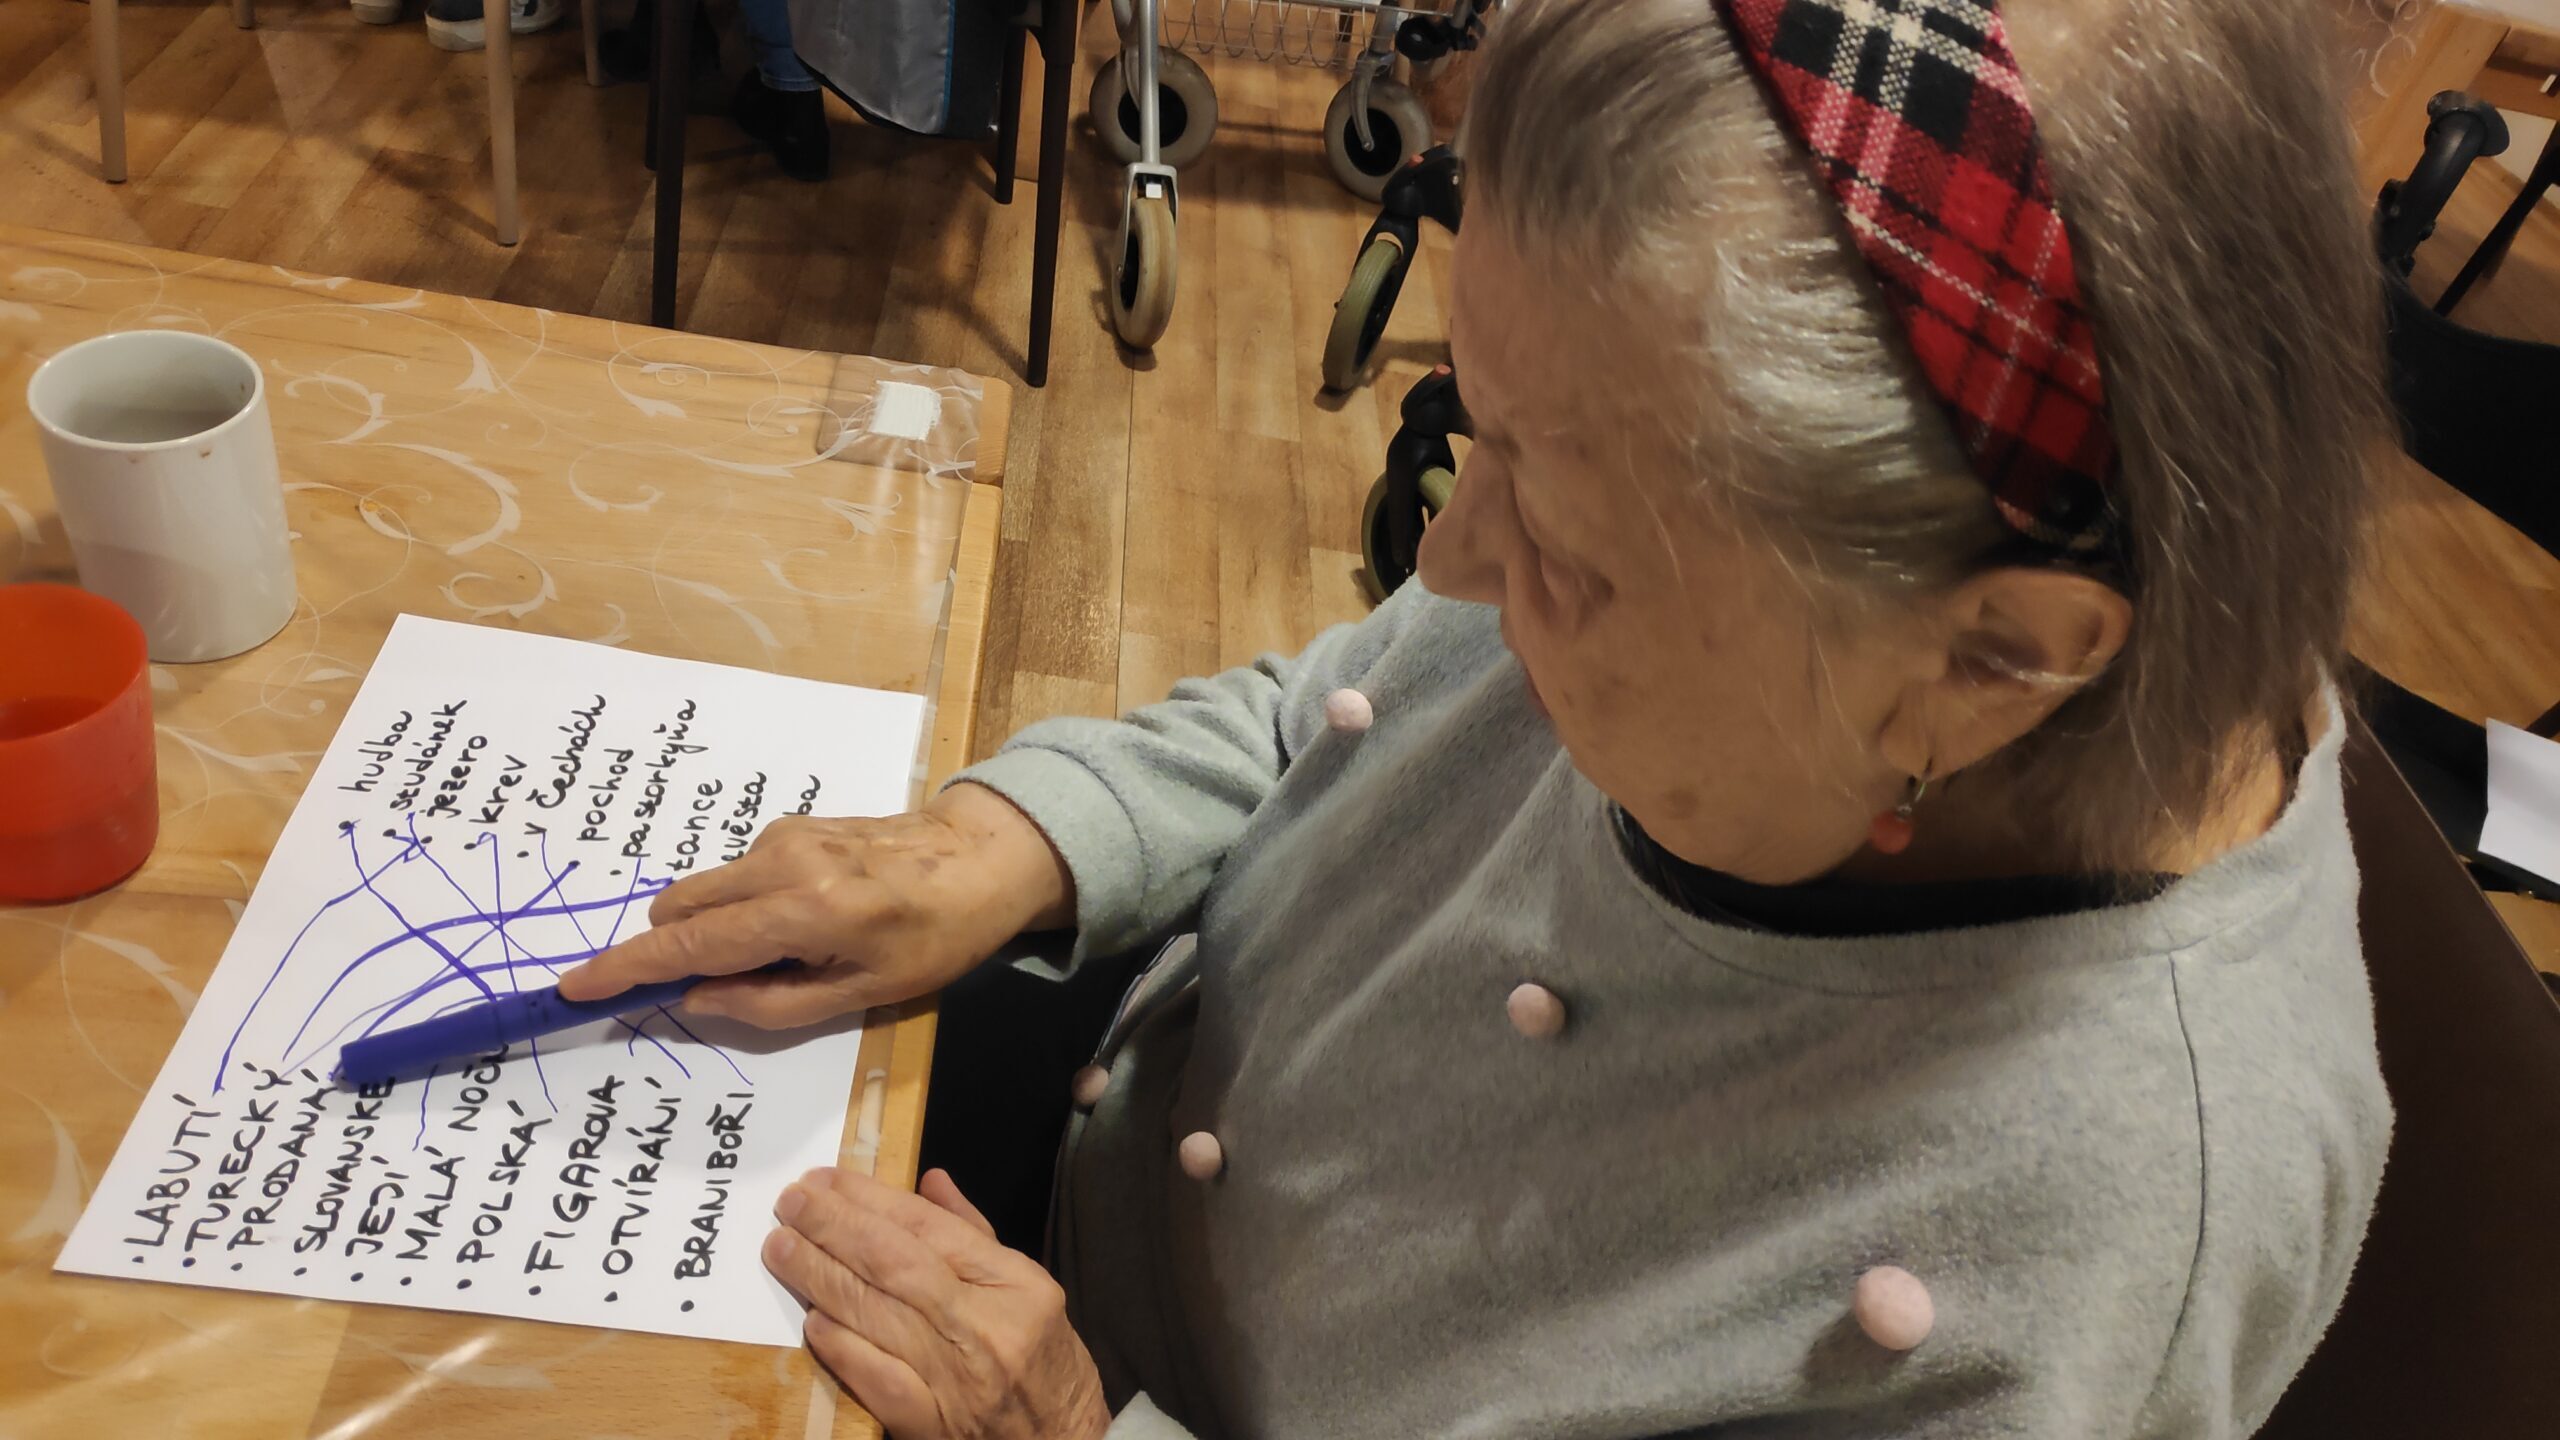 • LABUTÍ
• TURECKÝ
• PRODANÁ
• SLOVANSKÉ
• JEJÍ
• MALÁ NOČN
• POLSKÁ
• FIGAROVA
• OTVÍRÁNÍ
• BRANIBOŘI
• hudba
• studánek
• jezero
• krev
• v Čechách
• pochod
• pastorkyňa
tance
evěsta
ba